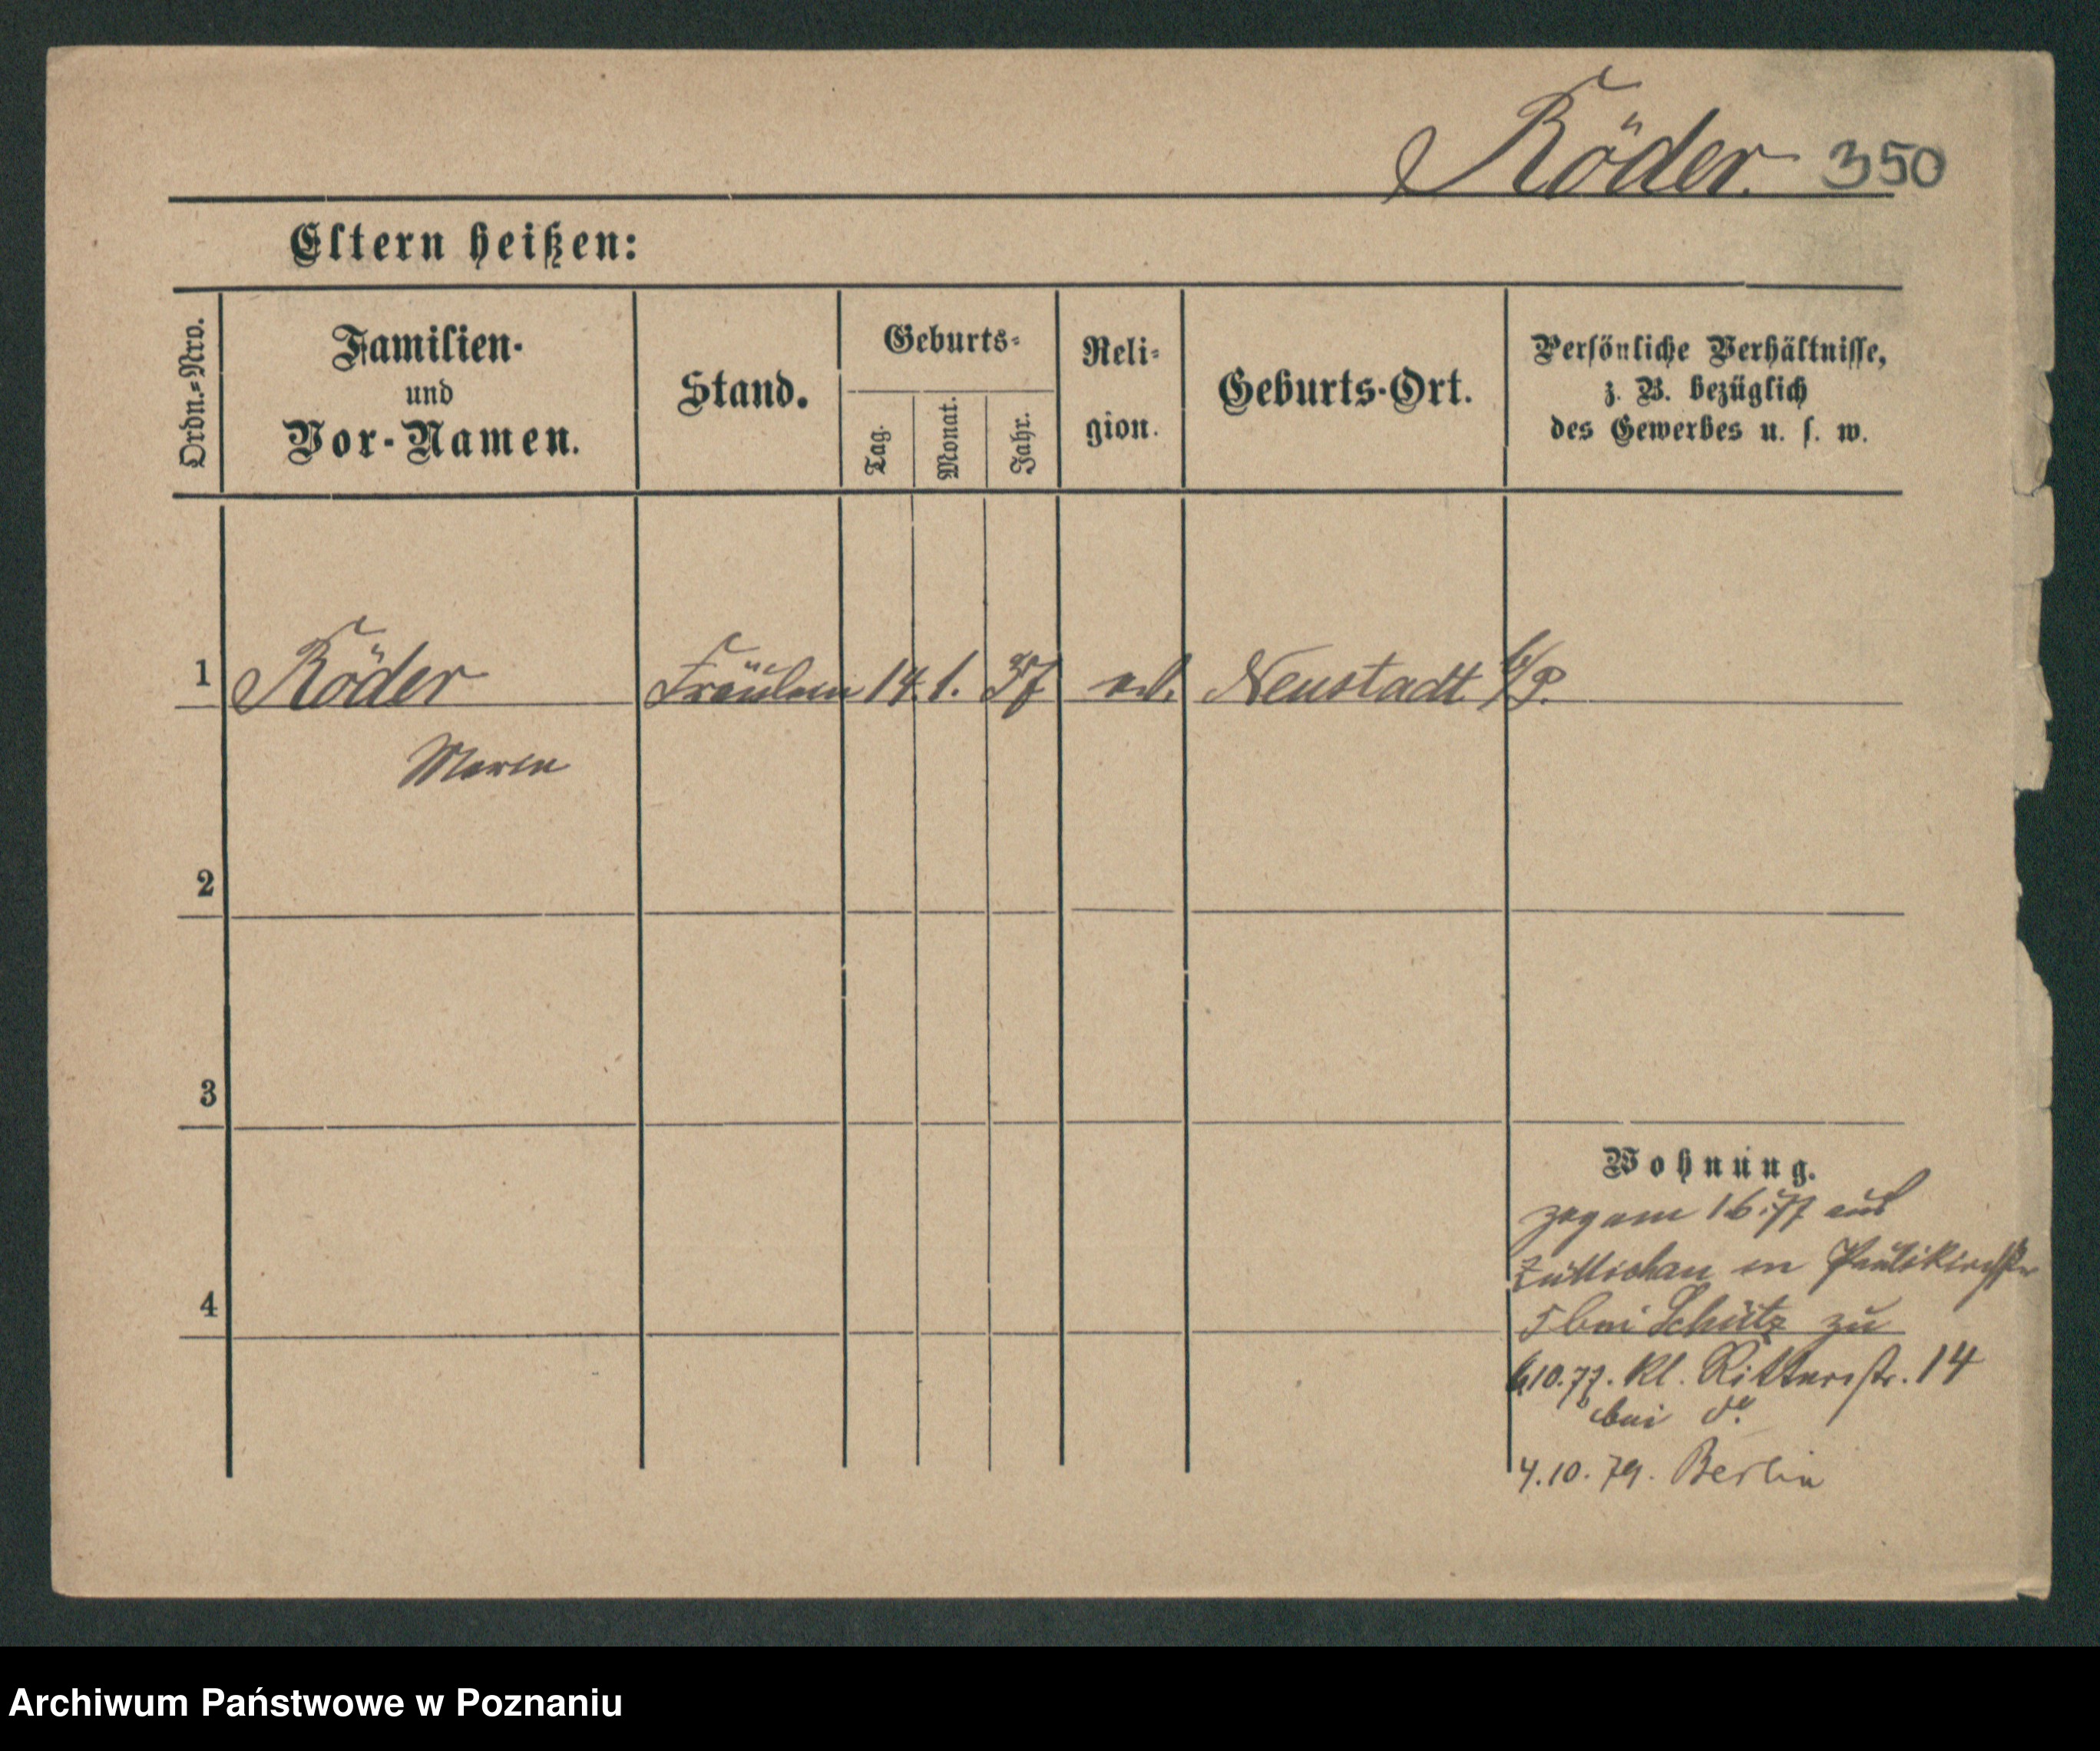 Röder. 350
Eltern heißen:
Ordn.-Nro.
Familien-
und
Vor-Namen.
Stand.
Geburts-
Tag.
Monat.
Jahr.
Reli-
gion.
Geburts-Ort.
Persönliche Verhältnisse,
z. B. bezüglich
des Gewerbes u. s. w.
1 Röder Fräulein 14. 1. 37 Neustadt b/P.
Marie
2
3
Wohnung.
zog am 1.6.77 aus
Züllichau in
4
5 bei Schütz zu
10.77. Kl. Ritterstr. 14
bei
4.10.79. Berlin
Archiwum Państwowe w Poznaniu